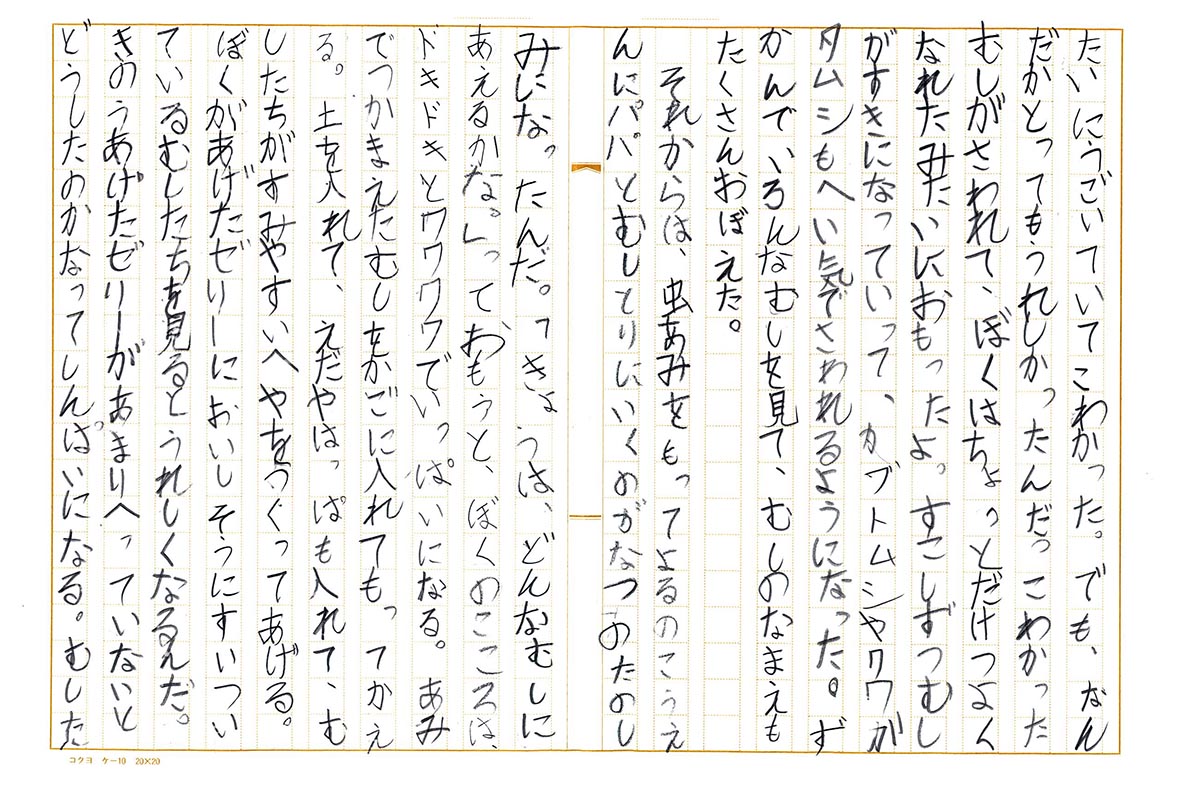 たいにうごいていてこわかった。でも、なん
だかとってもうれしかったんだ。こわかった
むしがさわれて、ぼくはちょっとだけつよく
なれたみたいにおもったよ。すこしずつむし
がすきになっていって、カブトムシやクワガ
タムシもへい気でさわれるようになった。ず
かんでいろんなむしを見て、むしのなまえも
たくさんおぼえた。
それからは、虫あみをもってよるのこうえ
んにパパとむしとりにいくのがなつのたのし
みになったんだ。「きょうは、どんなむしに
あえるかな。」っておもうと、ぼくのこころは、
ドキドキとワクワクでいっぱいになる。あみ
でつかまえたむしをかごに入れてもってかえ
る。土を入れて、えだやはっぱも入れて、む
したちがすみやすいへやをつくってあげる。
ぼくがあげたゼリーにおいしそうにすいつい
ているむしたちを見るとうれしくなるんだ。
きのうあげたゼリーがあまりへっていないと
どうしたのかなってしんぱいになる。むした
コクヨ ケー10 20×20